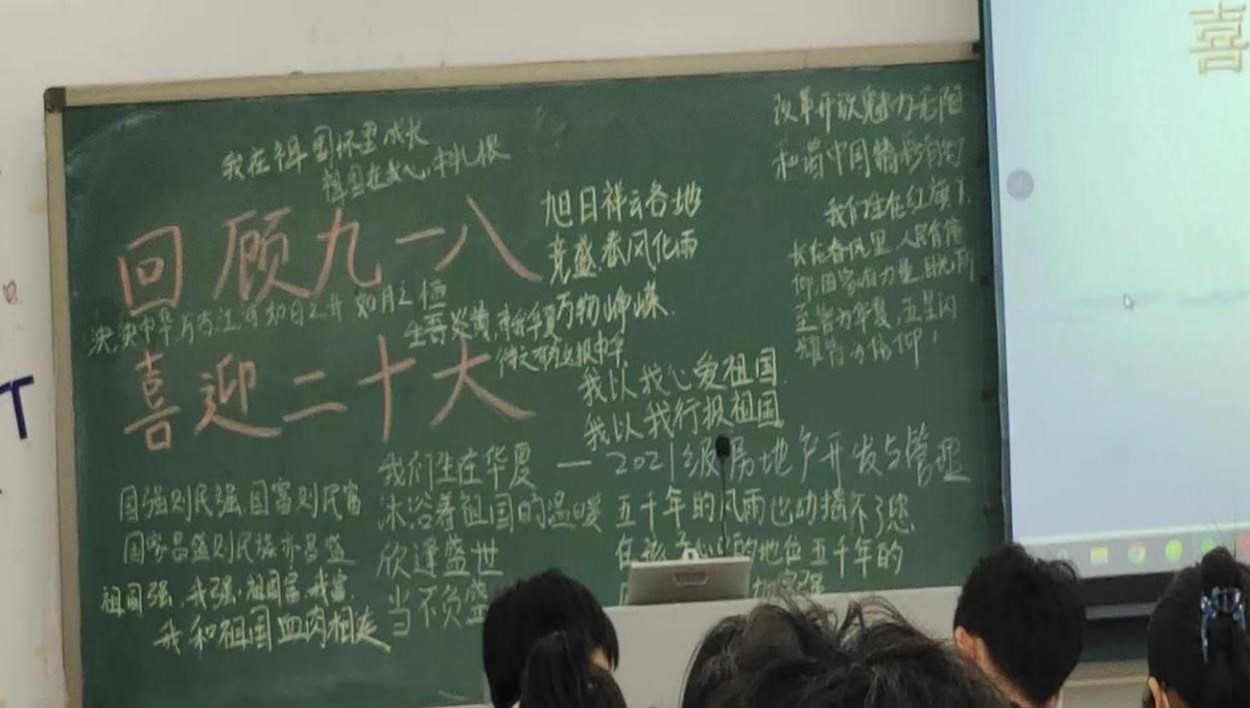 我在祖国怀里成长
祖国在我心中扎根
回顾九一八
泱泱中华 万古江河 如日之升 如月之恒
喜迎二十大
旭日祥云各地
竞盛.春风化雨
万物峥嵘.
生吾炎黄,育我华夏
改革开放魅力无限
和谐中国精彩
我们生在红旗下,
长在春风里,人民有信
仰,国家有力量,目光所
至皆为华夏,五星闪
耀皆为信仰!
我以我心爱祖国.
我以我行报祖国
— 2021级房地产开发与管理
国强则民强,国富则民富
国家昌盛则民族亦昌盛
祖国强,我强,祖国富,我富.
我和祖国血肉相连
我们生在华夏
沐浴着祖国的温暖
欣逢盛世
当不负盛
五千年的风雨也动摇不了您
在 的地位五千年的
喜
T